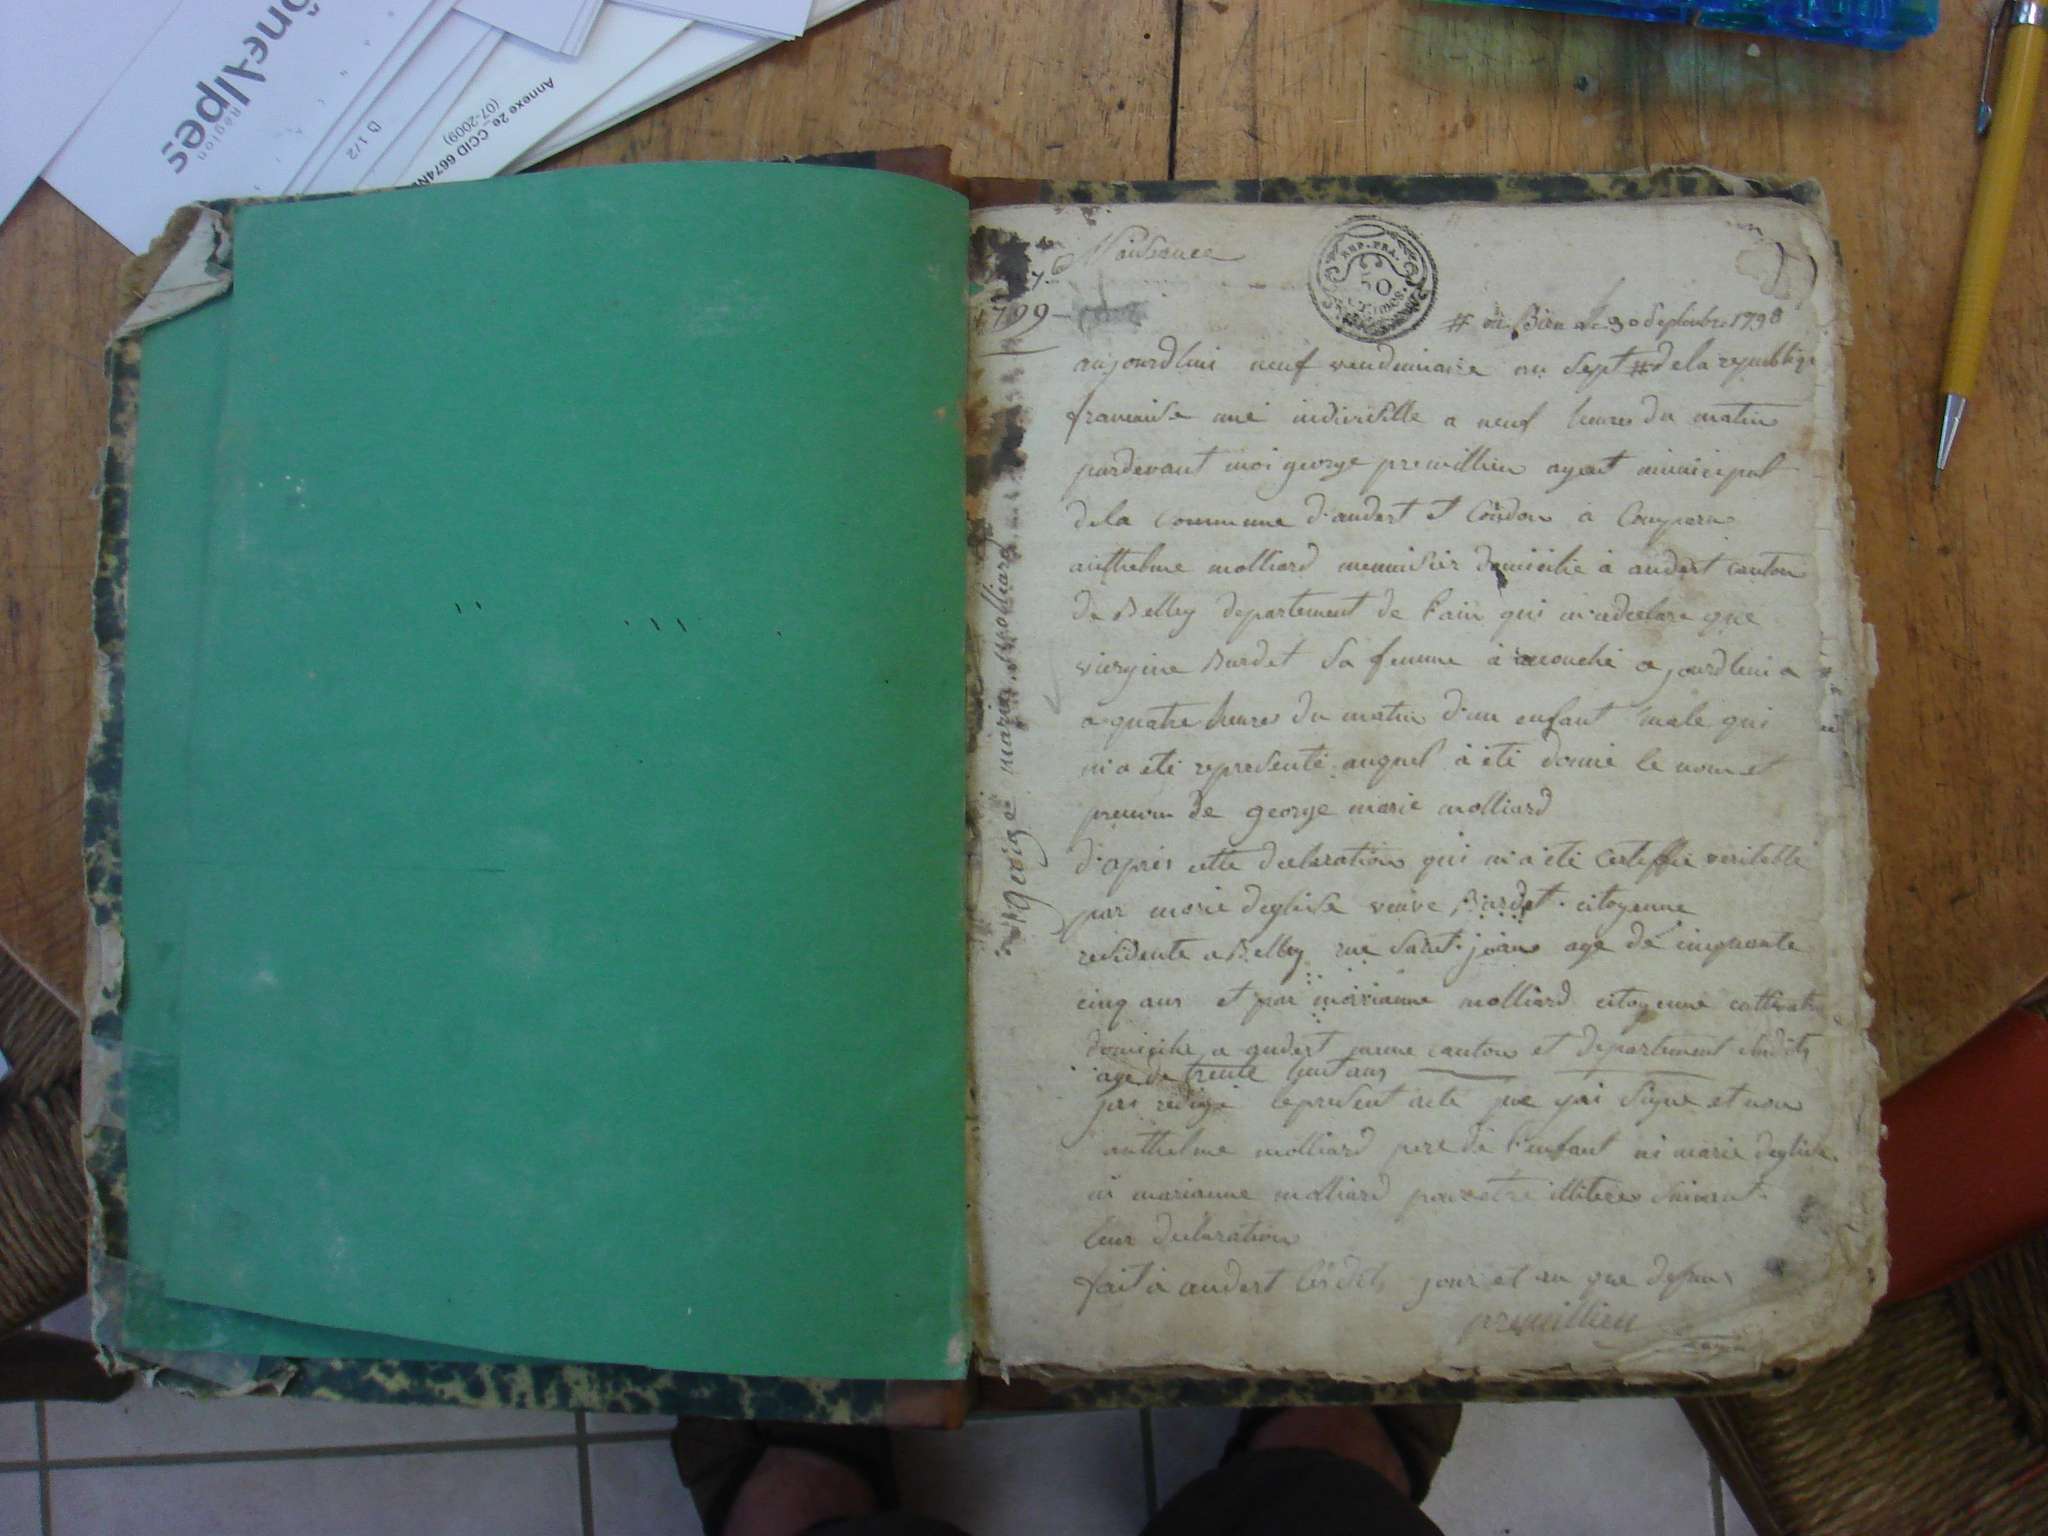 Rhône-Alpes
Région
D 1/2
Annexe 2e_CCID 6674N
(07-2009)
Naissance
REP. FRA.
50
1799
# ou Bien le 30 septembre 1798
aujourdhui neuf vendemiaire an sept # dela republiq
francaise une indivisible a neuf heures du matin
pardevant moi george premillieu agent municipal
dela commune d'andert et Condon a Comparu
anthelme molliard menuisier domicilie à andert canton
de Belley departement de l'ain qui m'a declare que
viergine Burdet sa femme à acouché ajourdhui a
a quatre heures du matin d'un enfant male qui
m'a eté represénté auquel à été donné le nom et
prenom de george marie molliard
d'après cette declaration qui m'a été Certiffie veritable
par marie deglise veuve Burdet citoyenne
residente a Belley rue Saint jean age de cinquante
cinq ans et par marianne molliard citoyenne
domicilie a andert meme canton et departement susdits
age de trente huit ans
jai redigé le présent acte que jai signe et non
anthelme molliard pere de l'enfant ni marie deglise
ni marianne molliard pour etre illitere suivant
leur declaration
fait à andert lesdits jour et an que dessus
premillieu
george marie Molliard